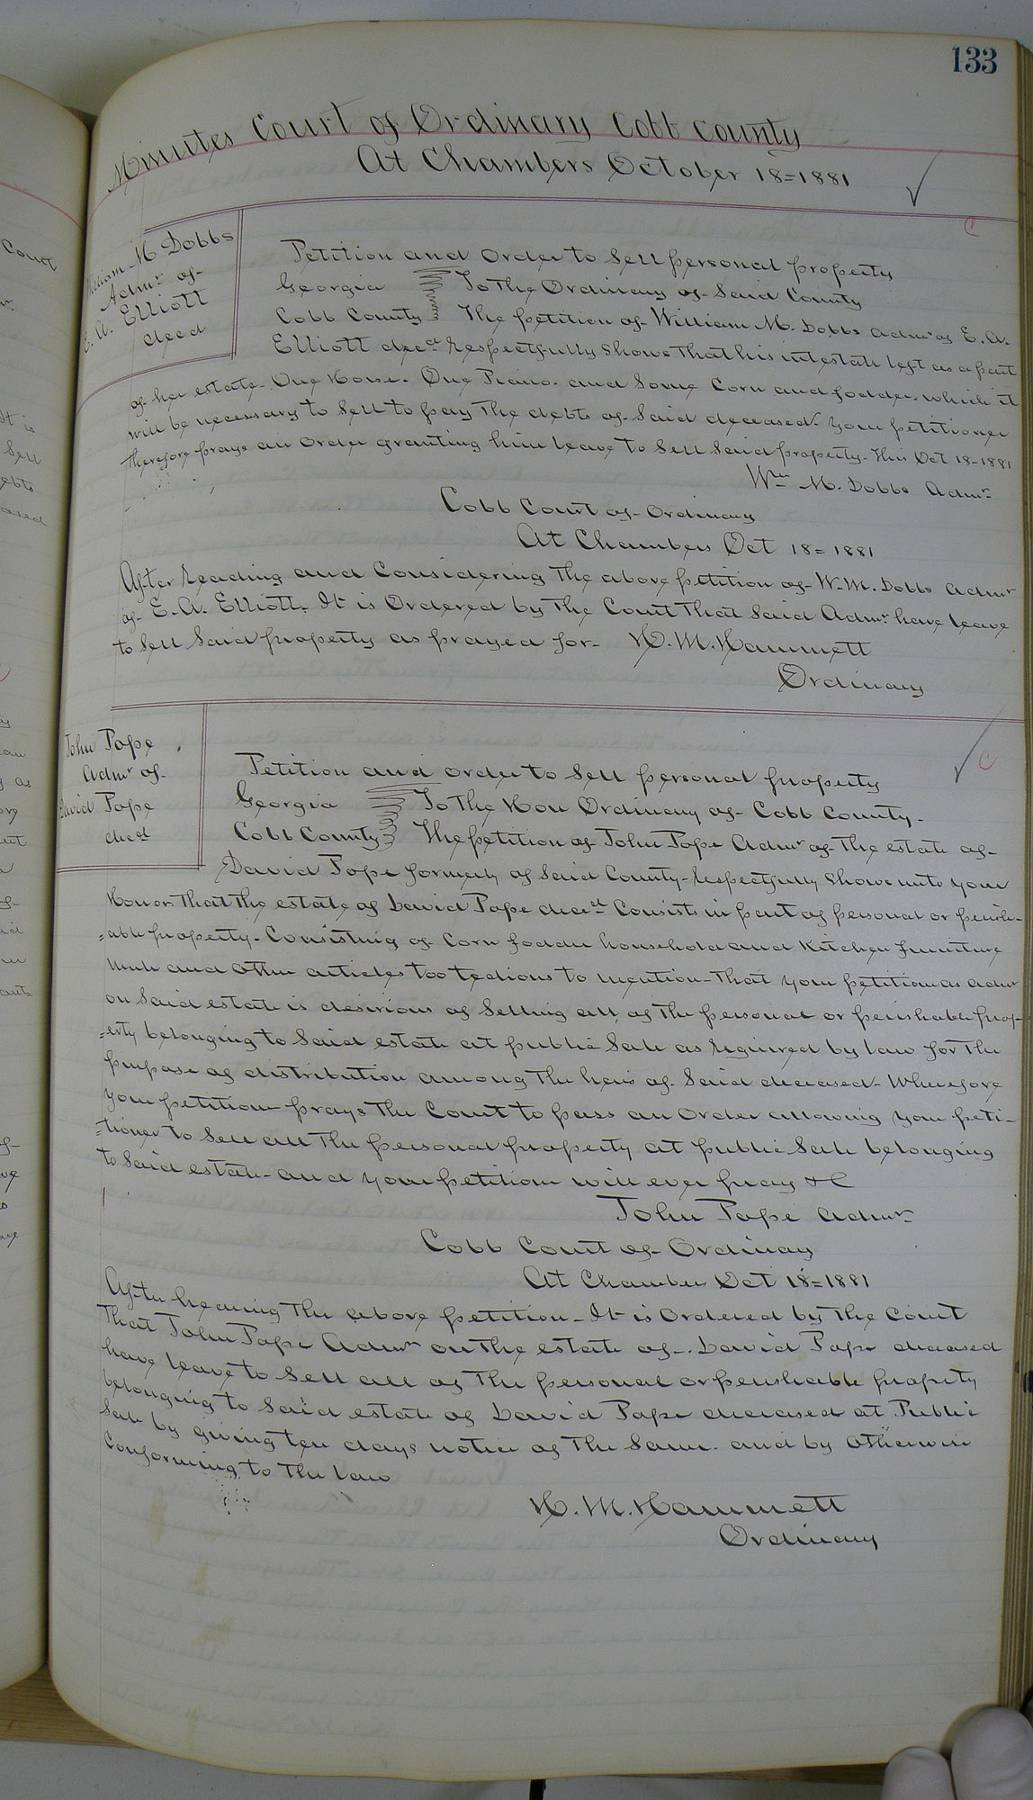 133
Minutes Court of Ordinary Cobb County
At Chambers October 18=1881
William M Dobbs
Admr of
E. A. Elliott
decd
Petition and Order to Sell personal property
Georgia To The Ordinary of Said County
Cobb County The petition of William M. Dobbs Admr of E. A.
Elliott decd respectfully Shows That his intestate left as a part
of her estate One Horse. One Piano. and Some Corn and fodder. which it
will be necessary to Sell to pay The debts of Said deceased. Your petitioner
Therefore prays an Order granting him leave to Sell Said property. This Oct 18-1881
Wm M. Dobbs Admr
Cobb Court of Ordinary
At Chambers Oct 18=1881
After reading and Considering The above petition of W. M. Dobbs Admr
of E. A. Elliott. It is Ordered by The Court That Said Admr have leave
to Sell Said property as prayed for. H. M. Hammett
Ordinary
John Pope
Admr of
David Pope
decd
Petition and order to Sell personal property
Georgia To The Hon Ordinary of Cobb County.
Cobb County The petition of John Pope Admr of The estate of
David Pope formerly of Said County respectfully Shows unto your
Honor That The estate of David Pope decd Consists in part of personal or perish-
=able property. Consisting of Corn fodder household and Kitchen furniture
Mule and other articles too tedious to mention. That your petitioner as admr
on Said estate is desirious of Selling all of The personal or perishable prop-
=erty belonging to Said estate at public Sale as required by law for The
purpose of distribution among The heirs of Said deceased. Wherefore
your petitioner prays The Court to pass an Order allowing your peti-
=tioner to Sell all The personal property at public Sale belonging
to Said estate and your petitioner will ever pray &C
John Pope Admr
Cobb Court of Ordinary
At Chambers Oct 18=1881
After hearing The above petition. It is Ordered by The Court
That John Pope Admr on The estate of David Pope deceased
have leave to Sell all of The personal or perishable property
belonging to Said estate of David Pope deceased at Public
Sale by giving ten days notice of The Same. and by otherwise
Conforming to The law
H. M. Hammett
Ordinary